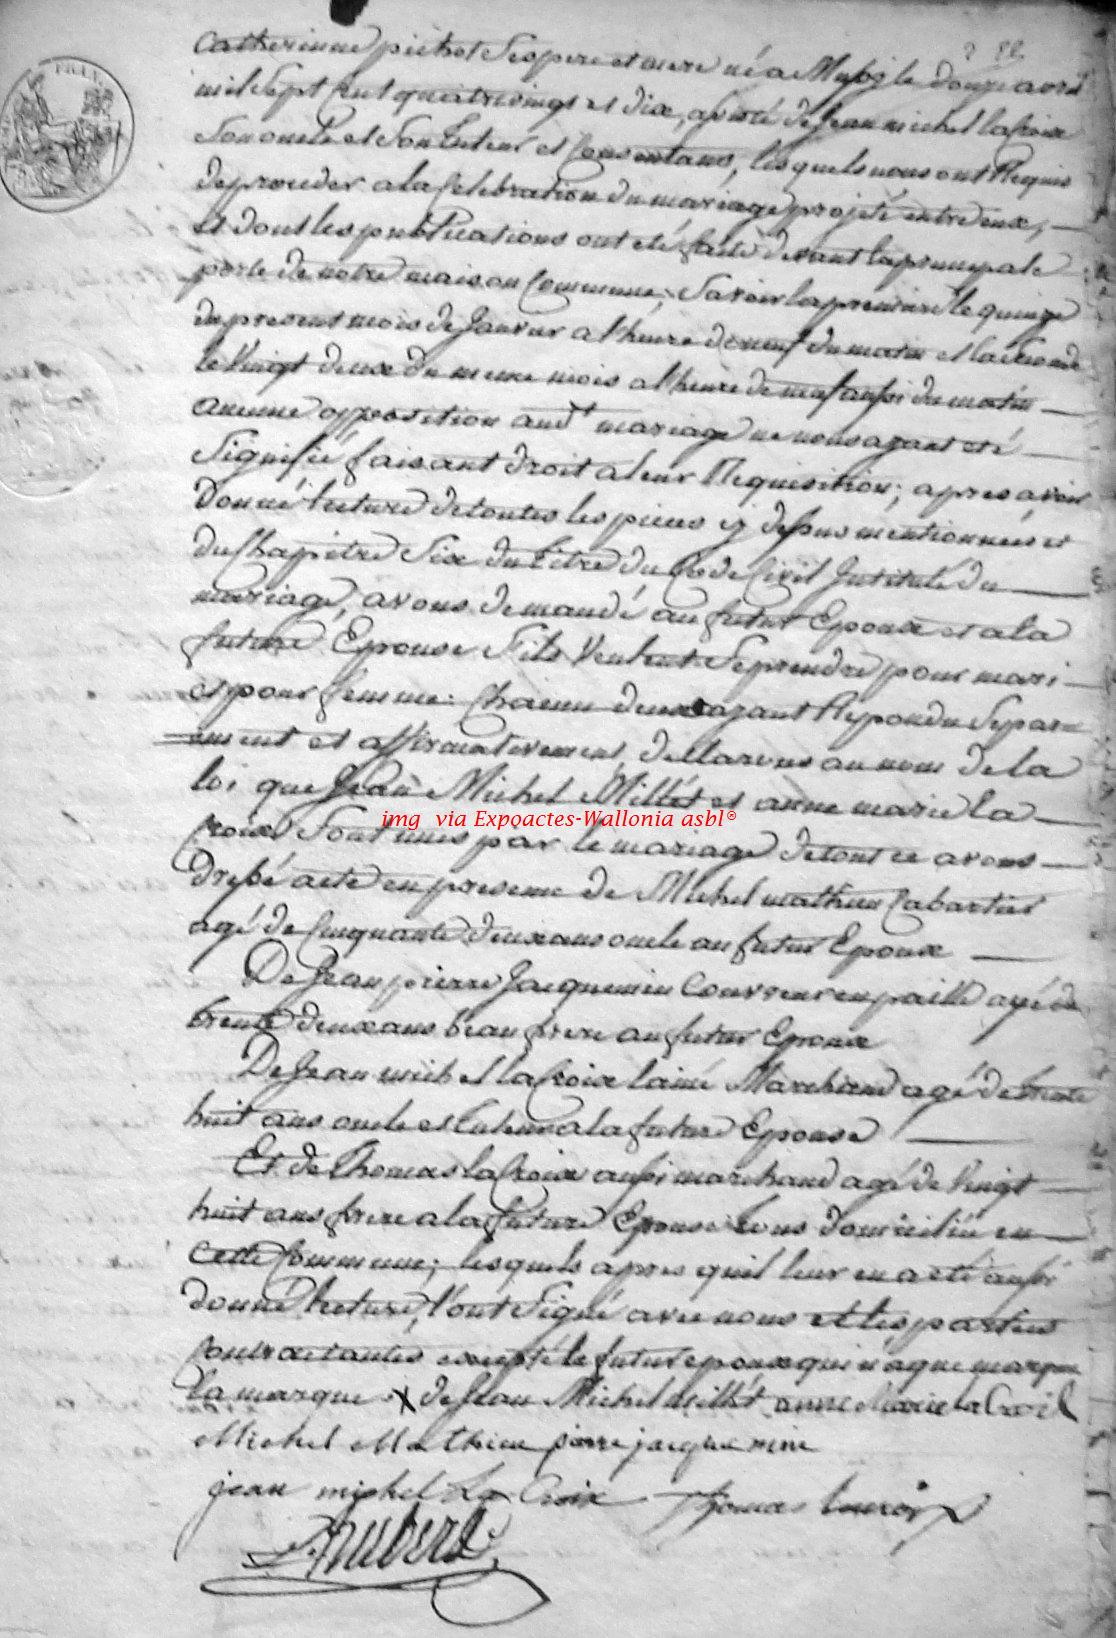 Catherinne pichot Ses pere et mere né a Mussy le Douze avril
mil Sept Cent quatrevingt et dix, assisté de Jean michel la Croix
Son oncle et Son tuteur et Consentans, lesquels nous ont Requis
de proceder a la Celebration du mariage projeté entre eux,
et dont les publications ont eté faite devant la principale
porte de notre maison Commune; Savoir la premiere le quinze
du present mois de Janvier a l'heure de neuf du matin et la Seconde
le Vingt deux du meme mois a l'heure de neuf aussi du matin
aucune opposition audt mariage ne nous ayant eté
Signifié faisant droit a leur Requisition; apres avoir
donné lecture de toutes les pieces cy dessus mentionnées et
du Chapitre Six du titre du Code Civil Intitulé du
mariage, avons demandé au futur Epoux et a la
future Epouse S'ils Veulent Se prendre pour mari
et pour femme: Chacun deux ayant Repondu Separe=
ment et affirmativement, declarons au nom de la
loi que Jean Michel Millet et anne marie la
Croix Sont unis par le mariage de tout ce avons
dressé acte en presence de Michel mathieu Cabartier
agé de Cinquante deux ans oncle au futur Epoux
De Jean pierre Jacquemin Couvreur en paille agé de
trente deux ans beau frere au futur Epoux
De Jean michel la Croix lainé Marchand agé de trente
huit ans oncle et tuteur a la future Epouse
Et de Thomas la Croix aussi marchand agé de Vingt
huit ans frere a la future Epouse tous domicilié en
Cette Commune; lesquels apres quil leur en a eté aussi
donné lecture, l'ont Signé avec nous et les parties
Contractantes excepté le futur epoux qui n'a que marqué
la marque X de Jean Michel Millet anne Marie la Croix
Michel Mathieu pierre jacque mine
jean michel La Croix Thomas lacroix
Hubert
img via Expoactes-Wallonia asbl®